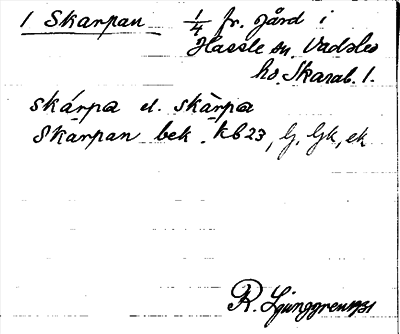 1 Skarpan 1/4 fr. gård i
Hassle sn. Vadsbo
hd. Skarab. l.
skárpa el. skàrpa
Skarpan bek. kb 23, lj, ljk, ek
R. Ljunggren 1931